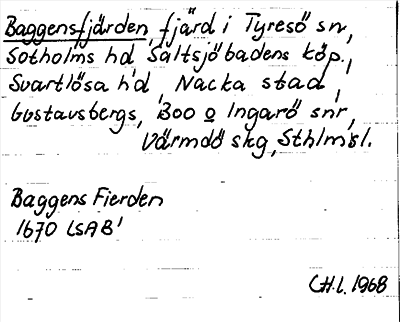 Baggensfjärden, fjärd i Tyresö sn,
Sotholms hd, Saltsjöbadens köp.,
Svartlösa hd, Nacka stad,
Gustavsbergs, Boo o Ingarö snr,
Värmdö skg, Sthlms l.
Baggens Fierden
1670 LSA B1
C.H.L. 1968